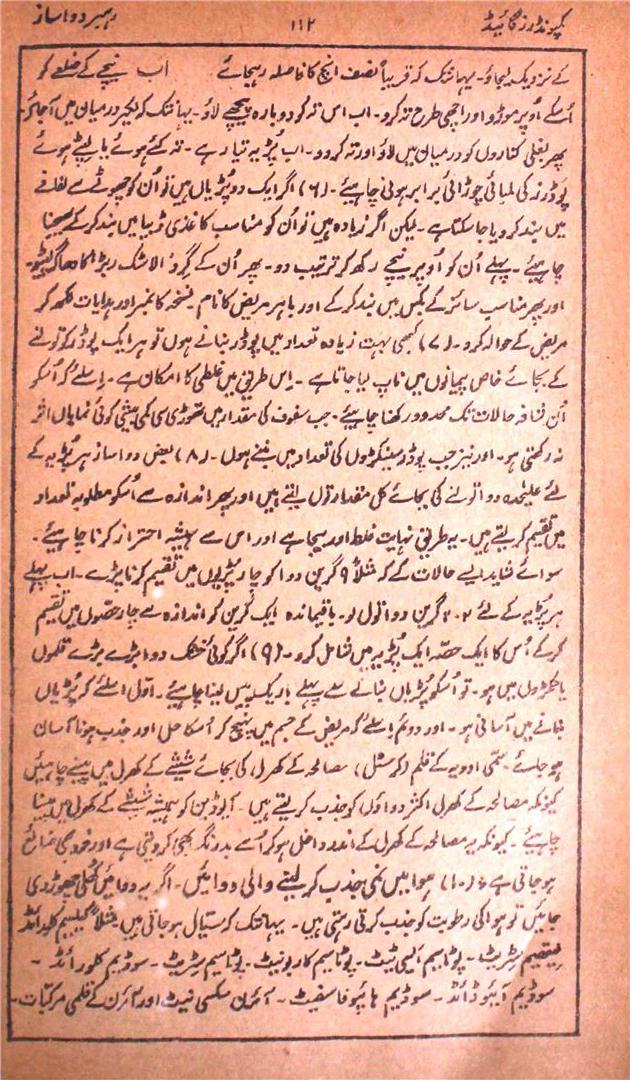 کمپونڈرز گائیڈ ۱۱۲ رہبر دواساز
کے نزدیک لیجاؤ۔ یہانتک کہ قریباً نصف انچ کا فاصلہ رہجائے اب نیچے کے ضلعے کو
اُسکے اُوپر موڑو اور اچھی طرح تہ کرو۔ اب اس تہ کو دوبارہ پیچھے لاؤ۔ یہانتک کہ لکیر درمیان میں آجائے۔
پھر بغلی کناروں کو درمیان میں لاؤ اور تہ کردو۔ اب پُڑیہ تیار ہے۔ تہ کئے ہوئے یا لپٹے ہوئے
پوڈرز کی لمبائی چوڑائی برابر ہونی چاہیئے۔ (۶) اگر ایک دو پڑیاں ہیں تو اُن کو چھوٹے سے لفافے
میں بند کردیا جاسکتا ہے۔ لیکن اگر زیادہ ہیں تو اُن کو مناسب کاغذی ڈبیا میں بند کرکے بھیجنا
چاہیئے۔ پہلے اُن کو اُوپر نیچے رکھ کر ترتیب دو۔ پھر اُن کے گرد الاسٹک ربڑ کا دھاگہ لپیٹو۔
اور پھر مناسب سائز کے بکس میں بند کرکے اور باہر مریض کا نام نسخہ کا نمبر اور ہدایات لکھ کر
مریض کے حوالہ کرو۔ (۷) کبھی بہت زیادہ تعداد میں پوڈر بنانے ہوں تو ہر ایک پوڈر کو تولنے
کے بجائے خاص پیمانوں میں ناپ لیا جاتا ہے۔ اِس طریق میں غلطی کا امکان ہے۔ اِسلئے کہ اُسکو
اُن شاذ حالات تک محدود رکھنا چاہیئے۔ جب سفوف کی مقدار میں تھوڑی سی کمی بیشی کوئی نمایاں اثر
نہ رکھتی ہو۔ اور نیز جب پوڈر سینکڑوں کی تعداد میں بننے ہوں۔ (۸) بعض دواساز ہر پُڑیہ کے
لئے علیٰحدہ دوا تولنے کی بجائے کل مقدار تول لیتے ہیں اور پھر اندازہ سے اُسکو مطلوبہ تعداد
میں تقسیم کرلیتے ہیں۔ یہ طریق نہایت غلط اور بیجا ہے اور اس سے ہمیشہ احتراز کرنا چاہیئے۔
سوائے شاید ایسے حالات کے کہ مثلاً ۹ گرین دوا کو چار پڑیوں میں تقسیم کرنا پڑے۔ اب پہلے
ہر پُڑیہ کے لئے ۲۔۲ گرین دوا تول لو۔ باقیماندہ ایک گرین کو اندازہ سے چار حصّوں میں تقسیم
کرکے اُس کا ایک حصّہ ایک پُڑیہ میں شامل کرو۔ (۹) اگر کوئی خشک دوا بڑے بڑے قلموں
یا ٹکڑوں میں ہو۔ تو اُسکو پُڑیاں بنانے سے پہلے باریک پیس لینا چاہیئے۔ اوّل اسلئے کہ پُڑیاں
بنانے میں آسانی ہو۔ اور دوئم اِسلئے کہ مریض کے جسم میں پہنچ کر اُسکا حل اور جذب ہونا آسان
ہو جائے۔ سمّی ادویہ کے قلم (کرسٹل) مصالحہ کے کھرل کی بجائے شیشے کے کھرل میں پیسنے چاہئیں
کیونکہ مصالحہ کے کھرل اکثر دواؤں کو جذب کرلیتے ہیں۔ آیوڈین کو ہمیشہ شیشے کے کھرل میں پیسنا
چاہیئے۔ کیونکہ یہ مصالحہ کے کھرل کے اندر داخل ہوکر اُسے بدرنگ بھی کردیتی ہے اور خود بھی ضائع
ہو جاتی ہے۔ (۱۰) ہوا میں نمی جذب کرلینے والی دوائیں۔ اگر یہ دوائیں کُھلی چھوڑدی
جائیں تو ہوا کی رطوبت کو جذب کرتی رہتی ہیں۔ یہانتک کہ سیّال ہو جاتی ہیں۔ مثلاً کیلسیم کلورائڈ
لیتھیم سٹریٹ۔ پوٹاسیم ایسی ٹیٹ۔ پوٹاسیم کاربونیٹ۔ پوٹاسیم سٹریٹ۔ سوڈیم کلورائڈ۔
سوڈیم آیوڈائڈ۔ سوڈیم ہائپوفاسفیٹ۔ آئرن سکسی نیٹ اور آئرن کے قلمی مرکبات۔